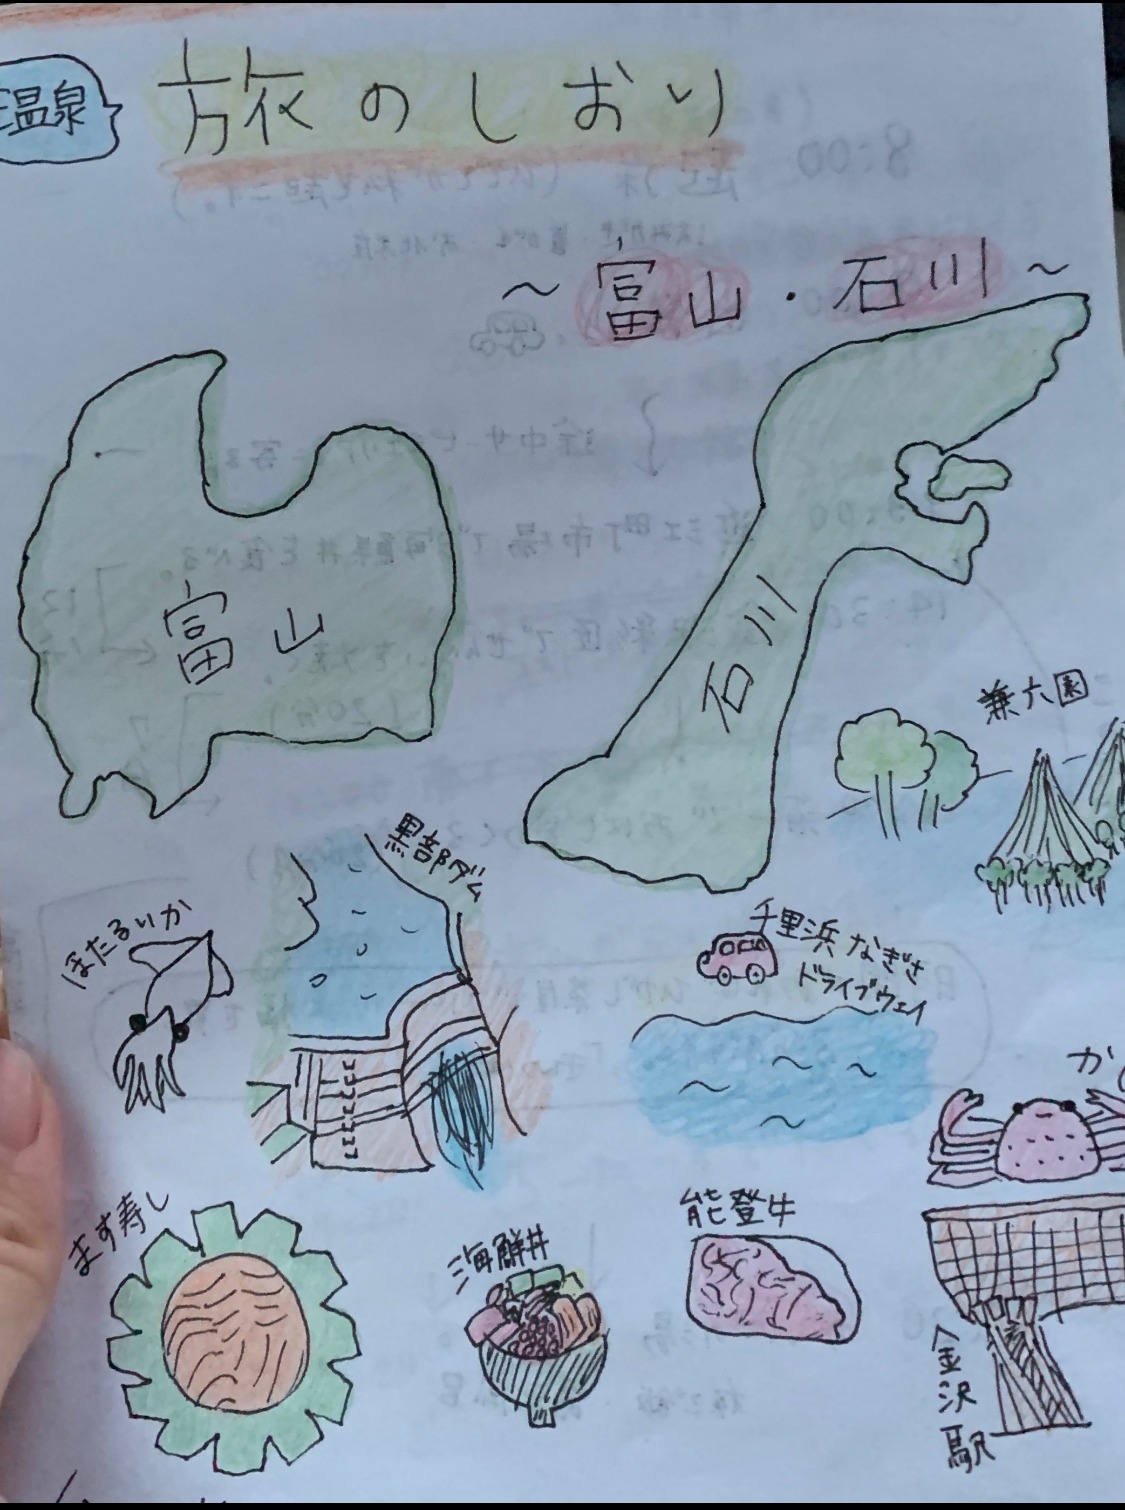 温泉
旅のしおり
～富山・石川～
富山
石川
兼六園
黒部ダム
ほたるいか
千里浜なぎさ
ドライブウェイ
か
ます寿し
海鮮丼
能登牛
金沢駅